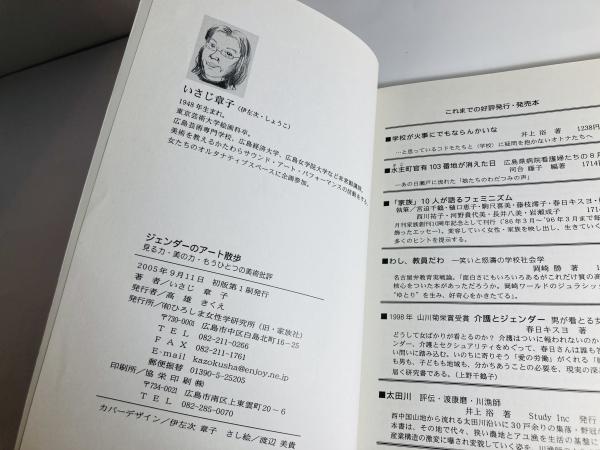 いさじ 章子 (伊左次・しょうこ)
1948年生まれ。
東京芸術大学絵画科卒。
広島芸術専門学校、広島経済大学、広島女学院大学など非常勤講師。
美術を教えるかたわらサウンド・アート・パフォーマンスの活動をする。
女たちのオルタナティブスペースに企画参加。
ジェンダーのアート散歩
見る力・美の力・もうひとつの美術批評
2005年9月11日 初版第1刷発行
著 者/いさじ 章 子
発行者/高 雄 きくえ
発行所/㈲ひろしま女性学研究所(旧・家族社)
〒730-0001 広島市中区白島北町16-25
TEL 082-211-0266
FAX 082-211-1761
E-mail kazokusha@enjoy.ne.jp
郵便振替 01390-5-25205
印刷所/協 栄 印 刷 ㈱
〒734-0021 広島市南区上東雲町20-6
TEL 082-285-0070
カバーデザイン/伊左次 章子 さし絵/渡辺 美貴
これまでの好評発行・発売本
■学校が火事にでもならんかいな 井上 裕 著 1238円
…と思っているコドモたちと〈学校〉に疑問を抱かないオトナたちへ
■水主町官有103番地が消えた日 広島県病院看護婦たちの8月
河合 藤子 編著 1714
―あの日瀬戸に流れた「娘たちのわだつみの声」
■「家族」10人が語るフェミニズム
執筆/宮迫千鶴・樋口恵子・駒尺喜美・藤枝澪子・春日キスヨ・
西川祐子・河野貴代美・長井八美・岩瀬成子 1717
月刊家族創刊10年間の記録としてリニューアル刊行('86年3月~'96年3月まで毎
飾ったエッセー)。変容していく女性・家族を映し出し、生きていく
多くのヒントを提示する。
■わし、教員だわ ―笑いと怒濤の学校社会学
岡崎 勝 著 1
名古屋弁教育実戦論。「面白さにもいろいろあるがこれだけ質の高
核心をついた本があっただろうか。岡崎ワールドのジュラシック
"ゆとり"を生み、好奇心をかきたてる」。
■1998年 山川菊栄賞受賞 介護とジェンダー 男が看とる女
春日キスヨ 著
どうして女ばかりが看とるのか? 介護はついに報われないのか
ンダー、介護とセクシュアリティをめぐって、春日さんは誰も答
い問いに踏み込む。いのちに寄りそう「愛の労働」がくれる「報
も男も、子どもも地域も、分かちあうことの必要を、現実の深
届く研究書である。(上野千鶴子)
■太田川 評伝・渡康磨・川漁師
井上 裕 著 Study Inc 発行
西中国山地から流れる太田川沿いに30戸余りの集落・野冠が
本書は、その地で代々、狭い農地とアユ漁を生活の基盤に
産業構造の激変に曝され変貌していく姿を、川漁師の